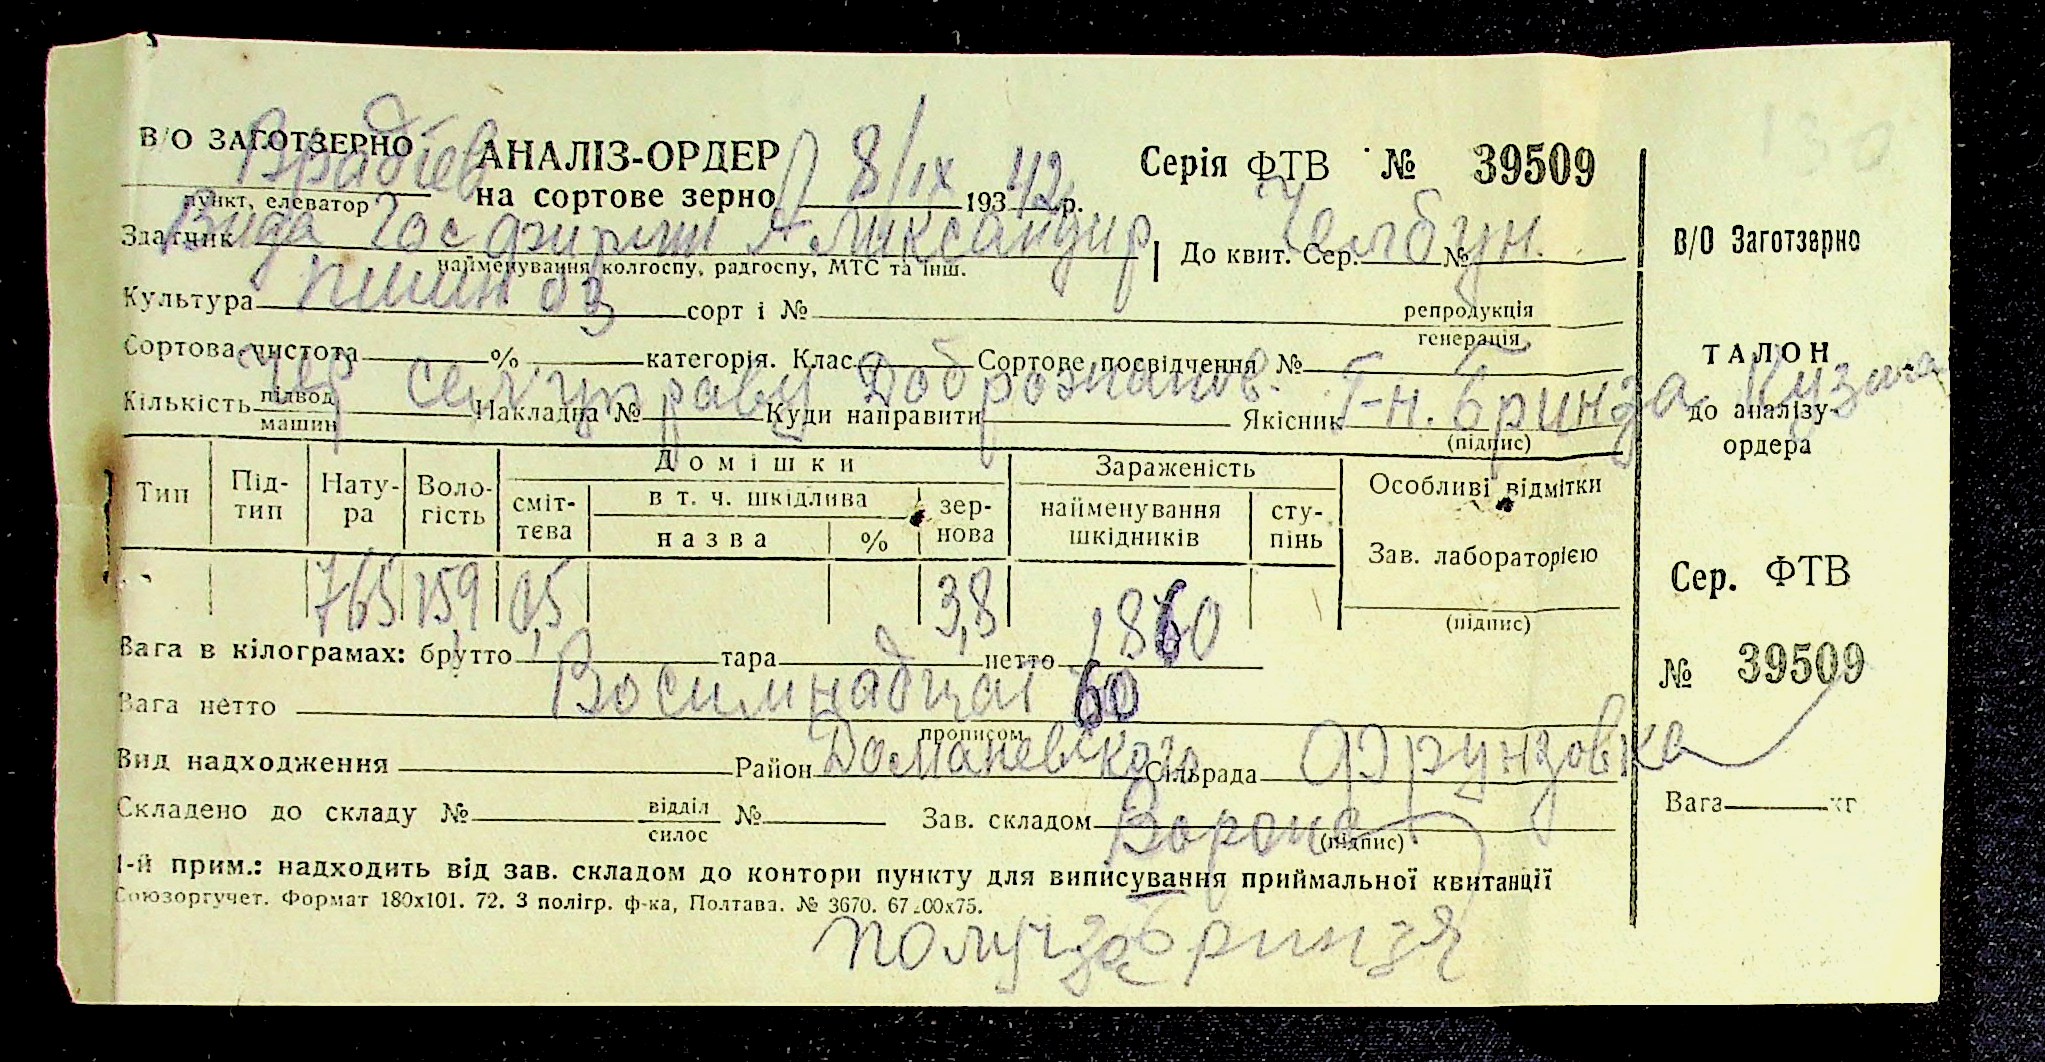 В/О ЗАГОТЗЕРНО
Врадіев
пункт, елеватор
АНАЛІЗ-ОРДЕР
на сортове зерно 8/IX 193 42 р.
Серія ФТВ № 39509
Здатчик
найменування колгоспу, радгоспу, МТС та інш.
До квит. Сер. №
Культура сорт і № репродукція
генерація
Сортова чистота % категорія. Клас Сортове посвідчення №
Кількість підвод
машин
Накладна № Куди направити Якісник Г-н. Бринза Кузьма
(підпис)
Тип Під-тип Нату-ра Воло-гість Домішки Зараженість Особливі відмітки
сміт-тєва в т. ч. шкідлива зер-нова найменування шкідників сту-пінь
назва % Зав. лабораторією
765 159 0,5 3,8
(підпис)
Вага в кілограмах: брутто тара нетто 1860
Вага нетто Восимнадцат 60
прописом
Вид надходження Район Доманевского Сільрада Фрунзовка
Складено до складу № відділ
силос
№ Зав. складом Ворона
(підпис)
1-й прим.: надходить від зав. складом до контори пункту для виписування приймальної квитанції
Союзоргучет. Формат 180х101. 72. 3 полігр. ф-ка, Полтава. № 3670.
Получ за Бринзя
В/О Заготзерно
ТАЛОН
до аналізу-
ордера
Сер. ФТВ
№ 39509
Вага кг